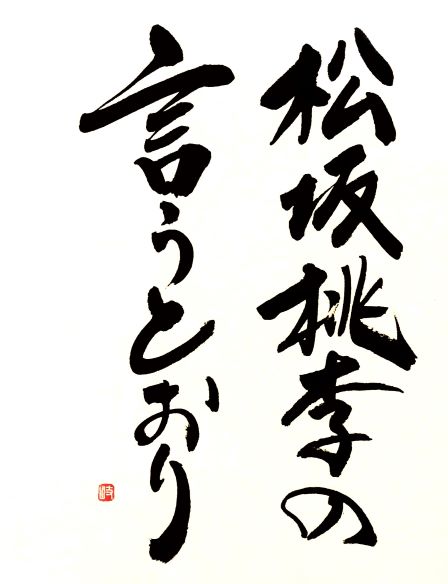 松坂桃李の
言うとおり